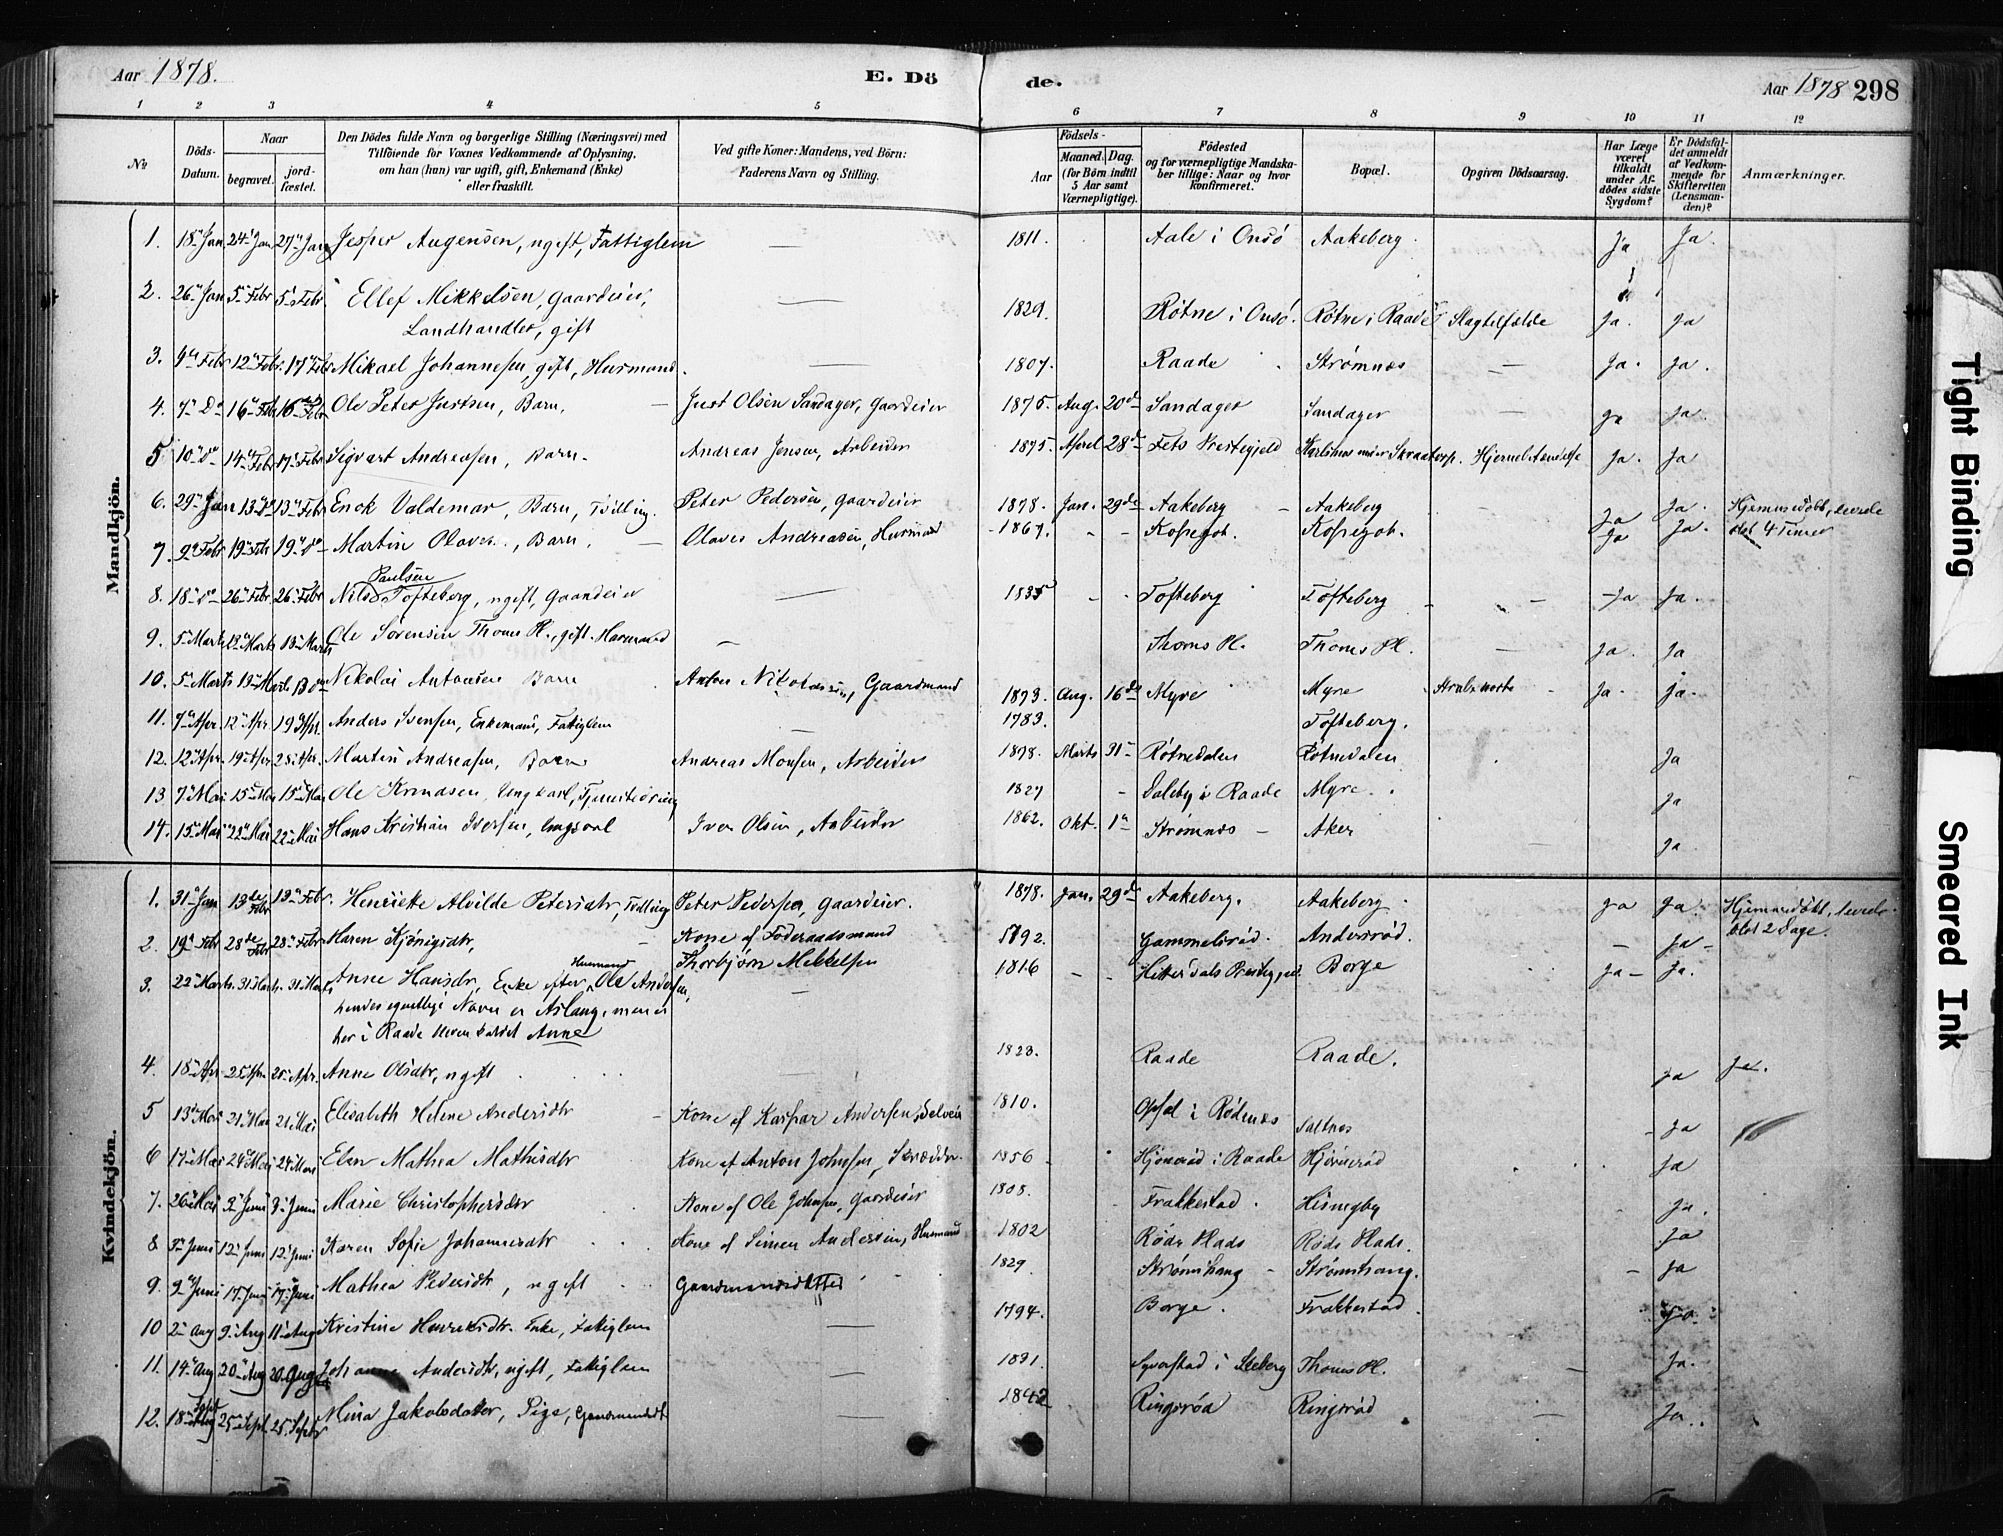 Aar 1878.
E. Dö
de.
Aar 1878 298
1 2 3 4 5 6 7 8 9 10 11 12
№
Döds-Datum.
Naar
begravet.
jordfæstet.
Den Dödes fulde Navn og borgerlige Stilling (Næringsvei) med
Tilföiende for Voxnes Vedkommende af Oplysning,
om han (hun) var ugift, gift, Enkemand (Enke)
eller fraskilt.
Ved gifte Koner: Mandens, ved Börn:
Faderens Navn og Stilling.
Födsels-
Aar
Maaned. Dag.
(for Børn indtil
5 Aar samt
Værnepligtige).
Födested
og for værnepligtige Mandska-
ber tillige: Naar og hvor
konfirmeret.
Bopæl.
Opgiven Dödsaarsag.
Har Læge
været
tilkaldt
under Af-
dödes sidste
Sygdom?
Er Dödsfal-
det anmeldt
af Vedkom-
mende for
Skifteretten
(Lensman-
den)?
Anmærkninger.
Mandkjön.
1. 18 Jan 24 Jan 27 Jan Jesper Augensen, ugift, Fattiglem — 1811. Aale i Onsö Aakeberg. Ja Ja.
2. 26 Jan 5 Febr 5 Febr Ellef Mikkelsen, Gaardeier, — 1829. Rötne i Onsö. Rötne i Raade Slagtilfælde Ja. Ja
Landhandler, gift
3. 12 Febr. 17 Febr Mikael Johannesen, gift, Husmand. — 1807. Raade Strømnes — Ja. Ja.
4. 7 Do 16 Febr 16 Febr Ole Peter Justsen, Barn, — Just Olsen Sandager, Gaardeier 1875. Aug. 20d Sandager Sandager — Ja Ja.
5 10 Do 14 Febr 17 Febr Sigvart Andreasen, Barn. Andreas Jensen, Arbeider 1875. April 28d Fets Prestegjeld Skraatorp. Ja. Ja
6. 29 Jan 13 Do 13 Febr Valdemar, Barn, Tvilling. Peter Pedersen, Gaardeier 1878 Jan. 29de Aakeberg — Aakeberg Ja Ja. Hjemmedöbt, levede
7. 9 Febr 19 Febr 19 Do Martin Olavsen, Barn, — Olaves Andreasen, Husmand 1867. Kopegot. Kopegot. Ja Ja. blot 4 Timer
Paulsen
8. 18 Do 26 Febr. 26 Febr Nils Tofteberg, ugift, Gaardeier — 1835 Tofteberg Tofteberg — Ja Ja.
9. 5 Marts 13 Marts 13 Marts Ole Sörensen Thoms Pl., gift, Husmand — Thoms Pl. Thoms Pl. — Ja. Ja
10. 5 Marts 13 Marts 13 Do Nikolai Antonsen Barn Anton Nikolaisen, Gaardmand 1873. Aug. 16de Myre Myre Strubehoste Ja. Ja.
11. 7 Apr. 12 Apr. 19 Apr. Anders Svensen, Enkemand, Fattiglem — 1783. Tofteberg.
12. 12 Apr. 19 Apr. 28 Apr. Martin Andreasen, Barn Andreas Monsen, Arbeider 1878. Marts 31 Rötnedalen Rötnedalen Ja
13 7 Mai 15 Mai 15 Mai Ole Knudsen, Ungkarl, 1827 Daleby i Raade Myre. Ja
14. 15 Mai 22 Mai 22 Mai Hans Kristian Iversen, Iver Olsen, Arbeider 1862. Okt. 1 Strömnæs — Aker Ja.
Kvindekjön.
1. 31 Jan 13de Febr 13 Febr. Henriette Alvilde Petersdtr, Tvilling Peter Pedersen, Gaardeier. 1878. Jan. 29de Aakeberg. Aakeberg. Ja Ja. Hjemmedöbt, levede
blot 2 Dage.
2. 19 Febr 28de Febr 28 Febr Karen — Kone af Föderaadsmand 1792. Gammelsröd. Andersröd. — Ja
Thorbjörn Mikkelsen
3. 22 Marts. 31 Marts. 31 Marts Anne Hansdr, Enke efter Husmand Ole Andersen, — 1816 Hitterdals Prestegjeld Borge Ja — Ja.
hendes egentlige Navn er Aslaug, men er
her i Raade bleven kaldet Anne
4. 18 Apr 25 Apr. 28 Apr. Anne Olsdtr, ugift 1823. Raade Raade. Ja Ja.
5 13 Mai 21 Mai 21 Mai Elisabeth Helene Andersdtr — Kone af Kaspar Andersen, Selveier 1810. i Rödenæs Saltnes — Ja
6 17 Mai 24 Mai 24 Mai Elen Mathea Mathisdtr Kone af Anton Johnsen, Skrædder. 1856 Hjöneröd i Raade Hjöneröd Ja
7. 26 Mai 3 Juni 3 Juni Marie Christophersdtr Kone af Ole Johnsen, Gaardeier 1808. Frakkestad. Ja.
8 5 Juni 12 Juni 12 Juni Karen Sofie Johannesdtr Kone af Simen Andersen, Husmand 1802 Röds Plads Röds Plads. Ja
9. 9 Juni 17 Juni 17 Juni Mathea Pedersdtr, ugift 1829. Strömshaug — Strömshaug. — Ja
10 2 Aug 9 Aug 11 Aug Kristine Henriksdtr. Enke, Fattiglem — 1794. Borge. Frakkestad. Ja.
11. 14 Aug 20 Aug 20 Aug Johanne Andersdtr, ugift, Fattiglem — 1831. i Skeberg Thoms Pl. — Ja.
12. 18 Sept 25 Sept. 25. Septr Mina Jakobsdatter, Pige, Gaardmandsdt — 1842 Ringsröd Ringsröd — Ja.
Tight Binding
Smeared Ink